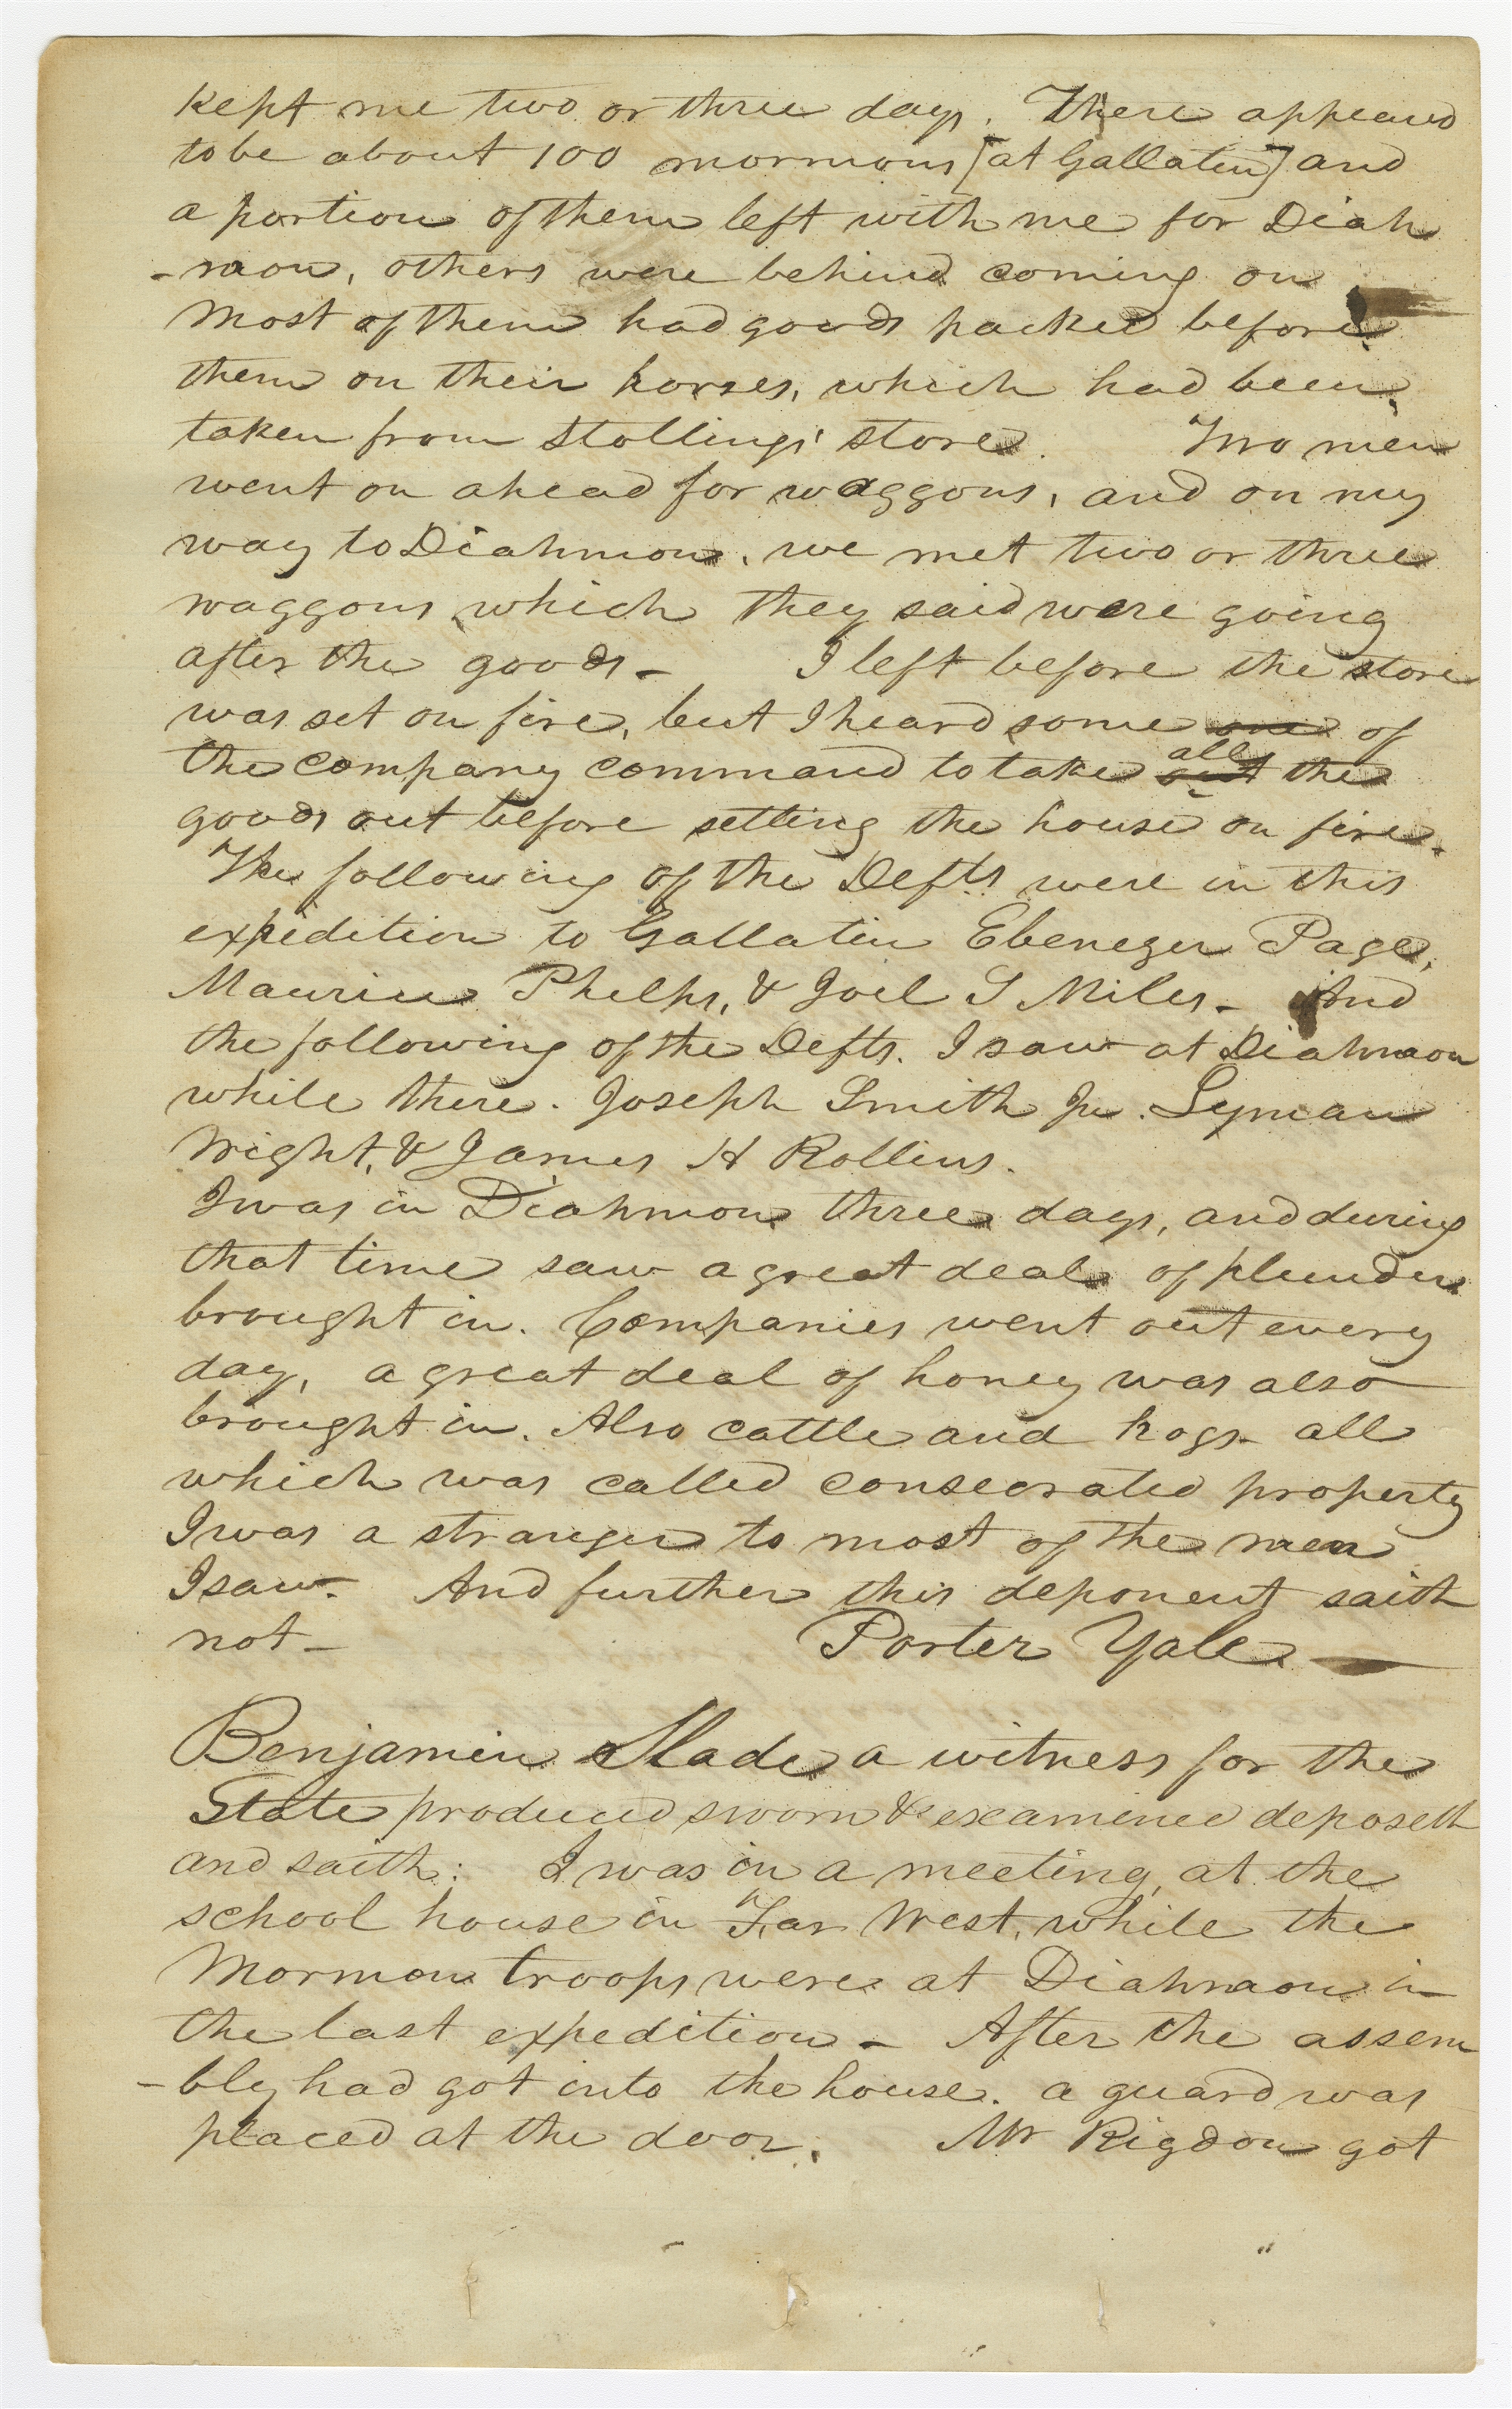 kept me two or three days. There appeared
to be about 100 mormons [at Gallatin] and
a portion of them left with me for Diah
-mon, others were behind coming on
Most of them had goods packed before
them on their horses, which had been
taken from Stollings' store. Two men
went on ahead for waggons, and on my
way to Diahmon, we met two or three
waggons which they said were going
after the goods- I left before the store
was set on fire, but I heard some one of
the company command to take out all the
goods out before setting the house on fire.
The following of the Defts were in this
expedition to Gallatin Ebenezer Page,
Maurice Phelps, & Joel S Miles- And
the following of the Defts. I saw at Diahmon
while there. Joseph Smith Jr. Lyman
Wight, & James H Rollins.
I was in Diahmon three days, and during
that time saw a great deal of plunder
brought in. Companies went out every
day, a great deal of honey was also
brought in. Also cattle and hogs- all
which was called consecrated property
I was a stranger to most of the men
I saw- And further this deponent saith
not- Porter Yale
Benjamin Slade a witness for the
State produced sworn & examined deposeth
and saith: I was in a meeting, at the
school house in Far West, while the
Mormon troops were at Diahmon in
the last expedition- After the assem
-bly had got into the house. a guard was
placed at the door. Mr Rigdon got